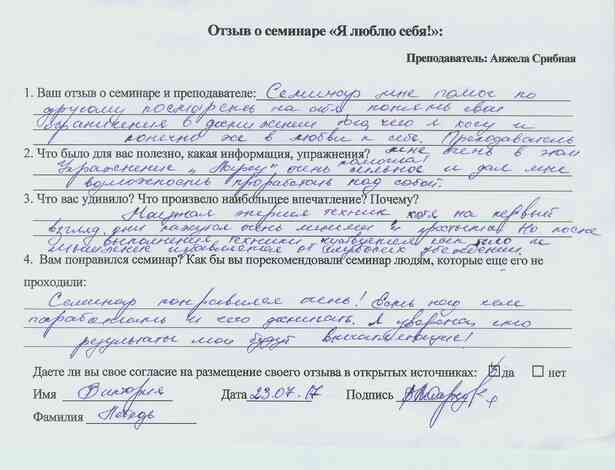 Отзыв о семинаре «Я люблю себя!»:
Преподаватель: Анжела Срибная
1. Ваш отзыв о семинаре и преподавателе: Семинар мне помог по
другому посмотреть на себя понять свои
ограничения в достижении того, чего я хочу и
конечно же в любви к себе. Преподаватель
2. Что было для вас полезно, какая информация, упражнения? мне очень в этом
помогла!
Упражнение очень сильное и дал мне
возможность проработать над собой.
3. Что вас удивило? Что произвело наибольшее впечатление? Почему?
энергия техник хотя на первый
взгляд они кажутся очень легкими и простыми. Но после
выполнения техники
избавляется от глубоких убеждений.
4. Вам понравился семинар? Как бы вы порекомендовали семинар людям, которые еще его не
проходили:
Семинар понравился очень! Есть над чем
поработать и чего достигать. Я уверена, что
результаты мои будут впечатляющие!
Даете ли вы свое согласие на размещение своего отзыва в открытых источниках: да нет
Имя Виктория Дата 23.07.17 Подпись
Фамилия